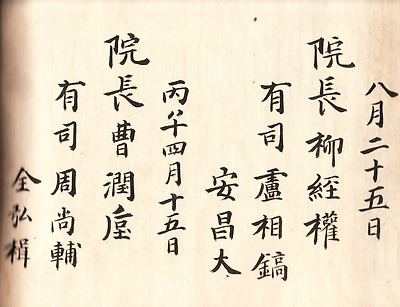 八月二十五日
院長柳經權
有司盧相鎬
安昌大
丙午四月十五日
院長曹潤
有司周尚輔
全弘楫